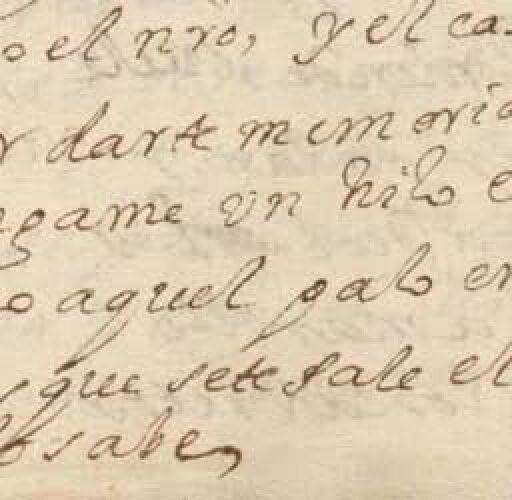 o el nr̃o, y el ca
r darte memoria
game vn hilo e
o aquel palo en
que sete sale el
sabe,